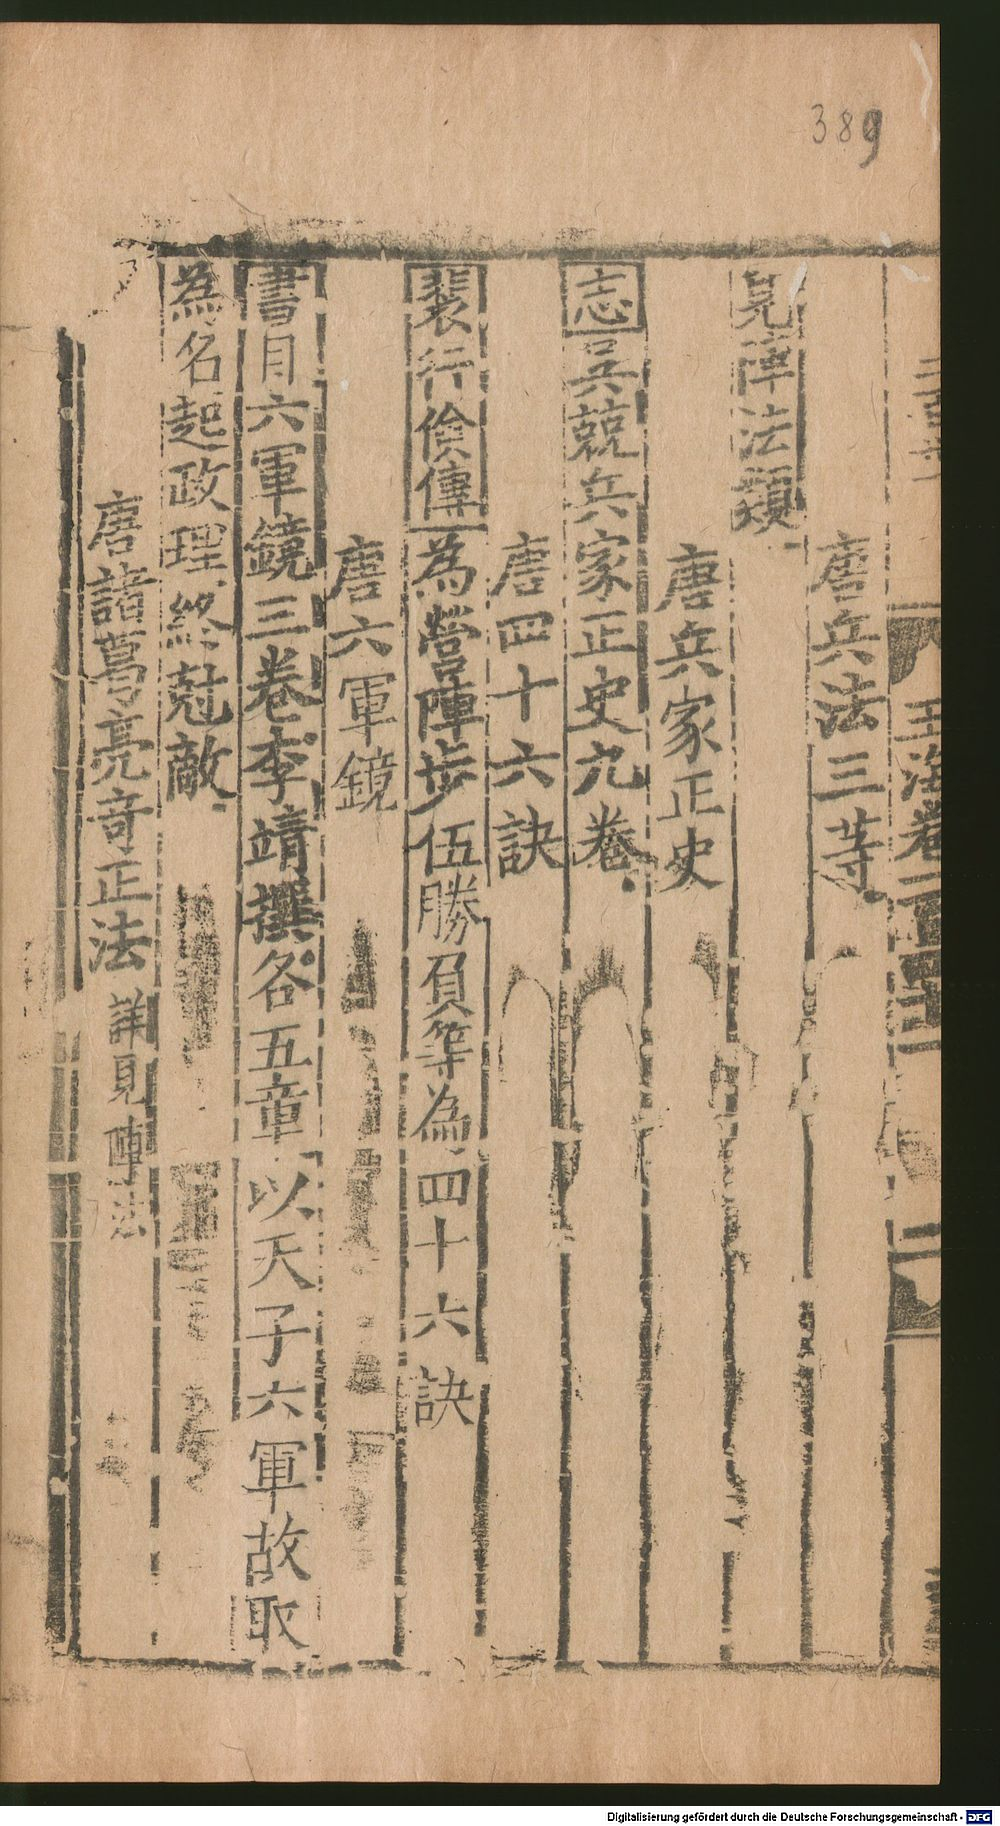 389
唐兵法三等
見陣法類
唐兵家正史
志吳兢兵家正史九卷
唐四十六訣
裴行儉傳為營陣步伍勝負等為四十六訣
唐六軍鏡
書目六軍鏡三卷李靖撰各五章以天子六軍故取
為名起政理終尅敵
唐諸葛亮竒正法詳見陣法
Digitalisierung gefördert durch die Deutsche Forschungsgemeinschaft - DFG